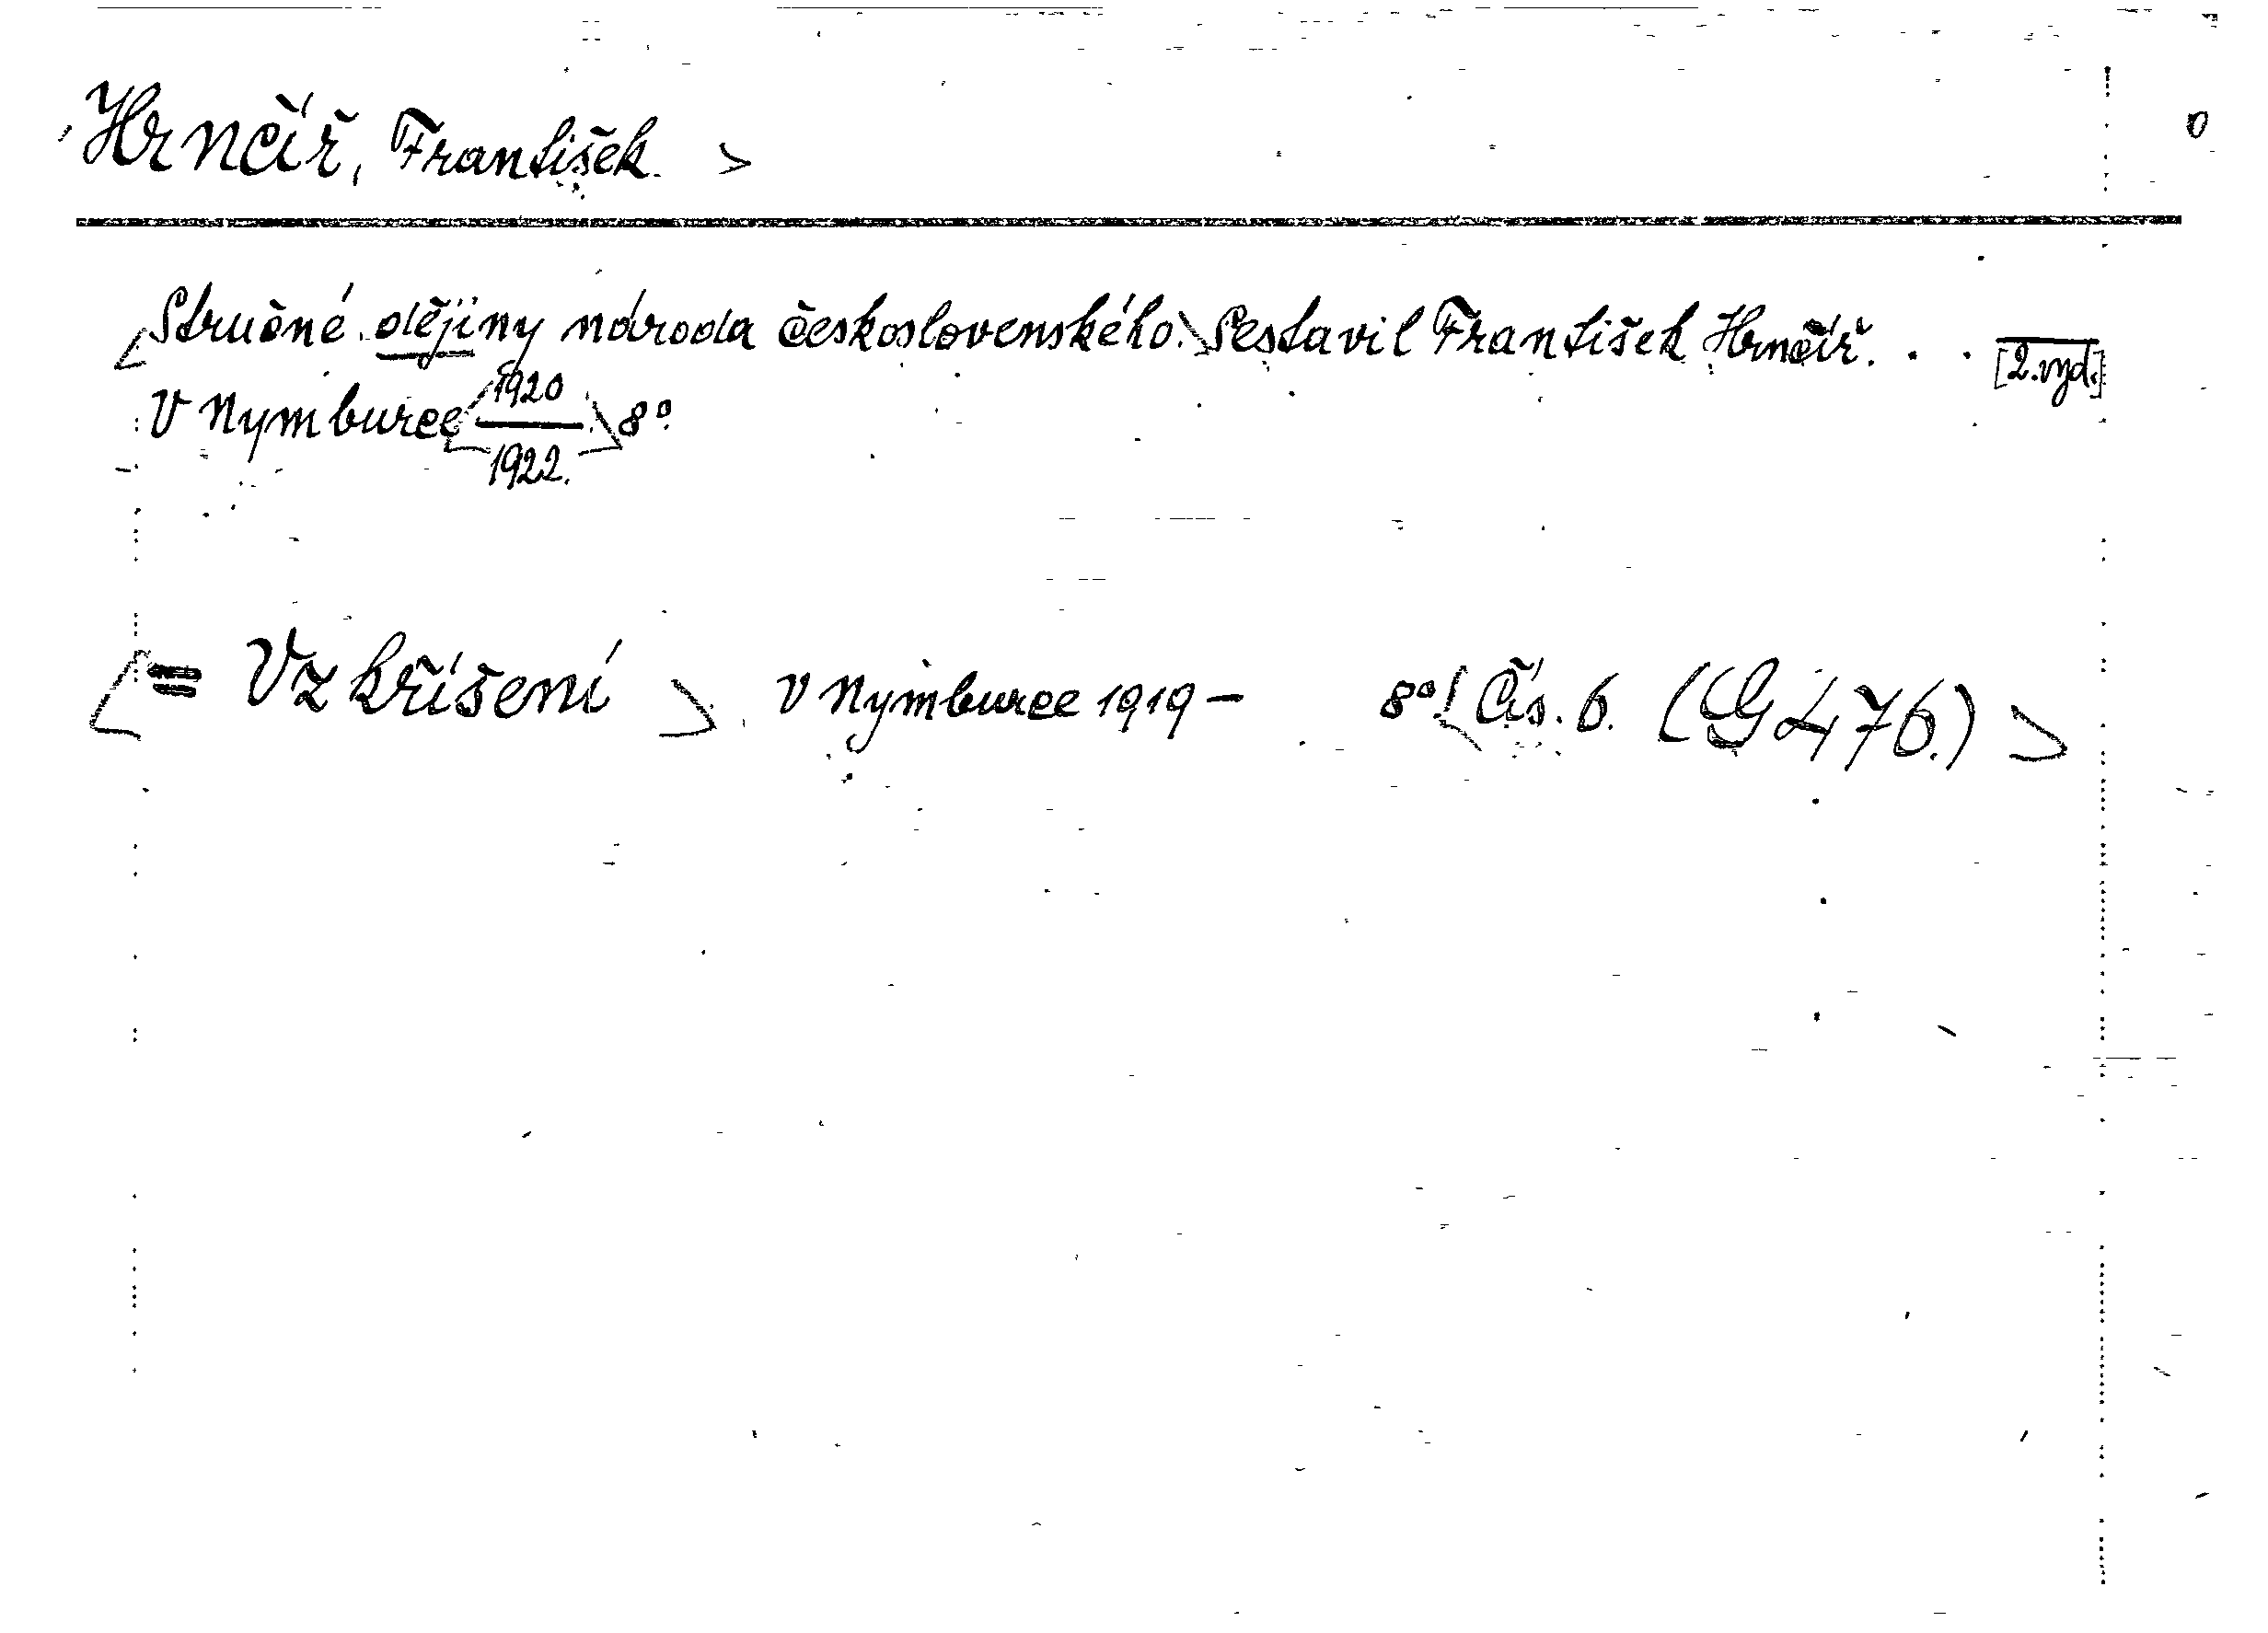 Hrnčíř, František. >
<Stručné dějiny národa československého.> Sestavil František Hrnčíř. . . [2.vyd.]
V Nymburce <1920
1922.> 8°
<= Vzkříšení > V Nymburce 1919 – 8°. <Čís. 6. (G 476.) >